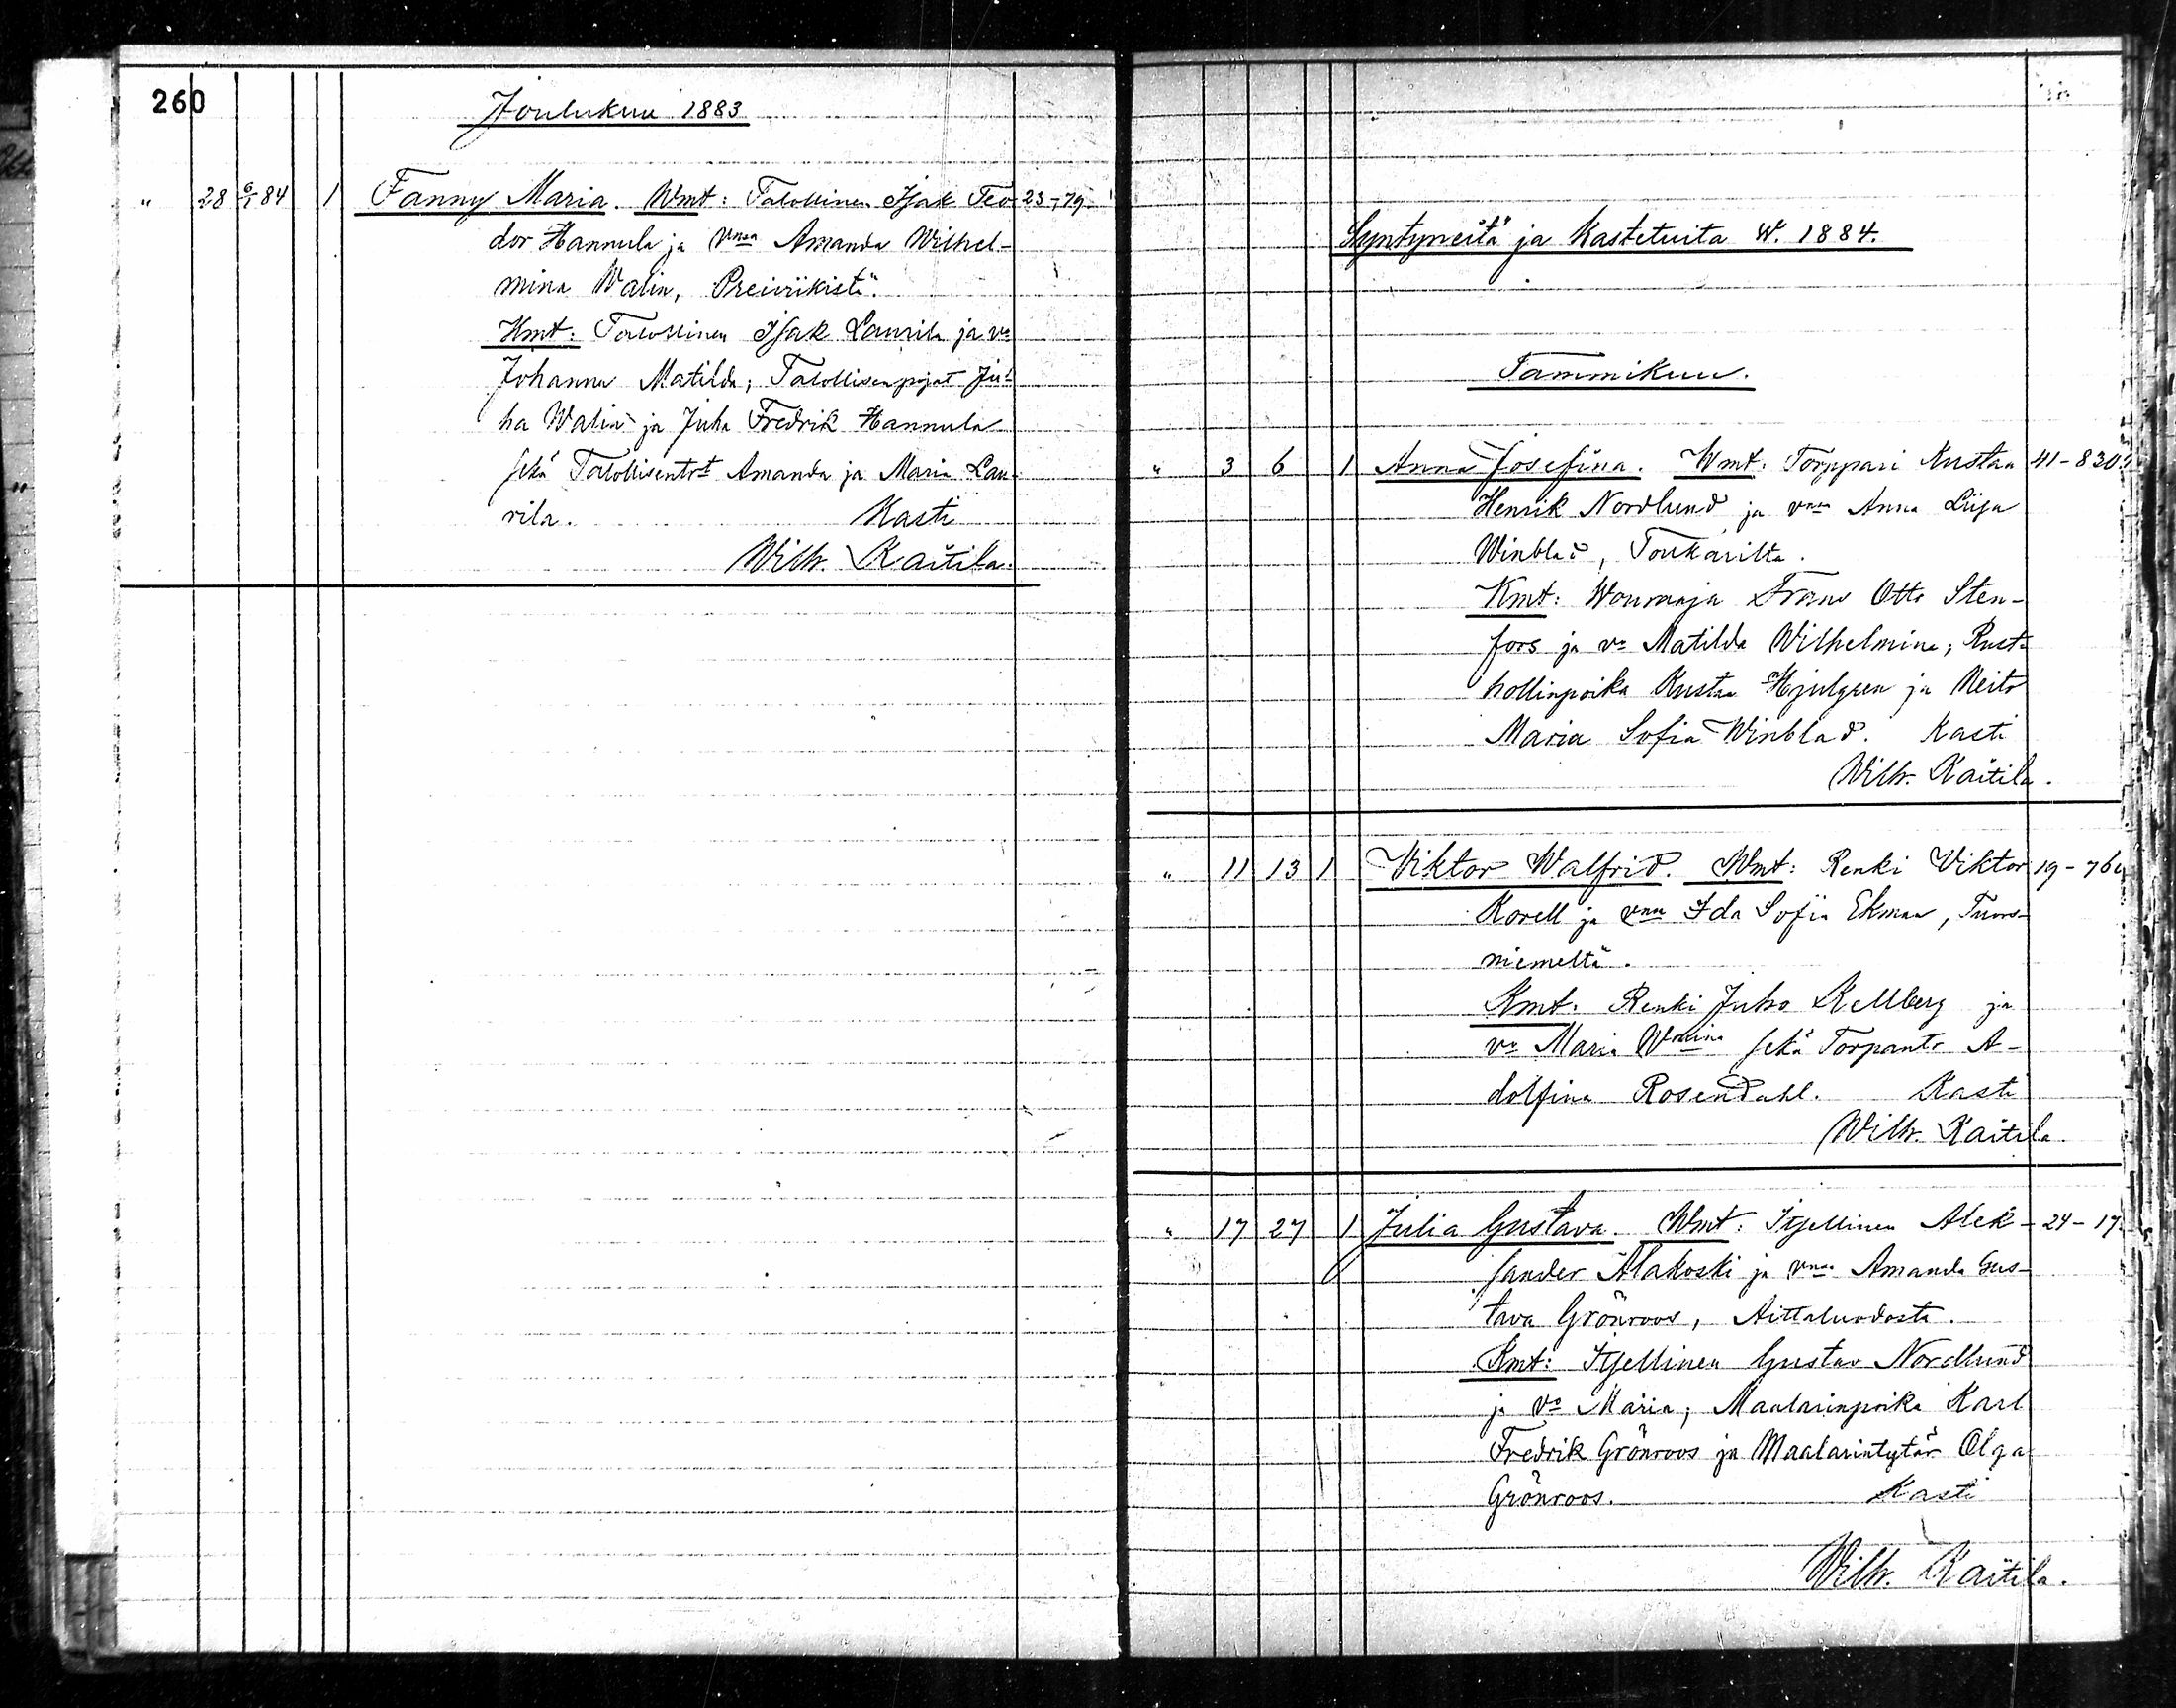 260
Joulukuu 1883
" 28 6/1 84 1 Fanny Maria. Wmt: Talollinen Isak Teo- 23-79
dor Hannula ja vnsa Amanda Wilhel-
mina Walin, Preiviikistä.
Kmt: Talollinen Isak Laurila ja vo
Johanna Matilda; Talollisenpojat Ju-
ha Walin ja Juha Fredrik Hannula
sekä Talollisentrt Amanda ja Maria Lau-
rila. Kasti
Wilh. Kaitila.
Syntyneitä ja Kastetuita W. 1884.
Tammikuu.
" 3 6 1 Anna Josefina. Wmt: Torppari Kustaa 41-830
Henrik Nordlund ja vnsa Anna Liisa
Winblad, Toukarilta.
Kmt: Wouraaja Frans Otto Sten-
fors ja vo Matilda Wilhelmina; Rust-
hollinpoika Kustaa Hjulgren ja Neito
Maria Sofia Winblad. Kasti
Wilh. Kaitila.
" 11 13 1 Viktor Walfrid. Wmt: Renki Viktor 19-76
Korell ja vnsa Ida Sofia Ekman, Tuors-
niemeltä.
Kmt: Renki Juho Kellberg ja
vo Maria Wmina sekä Torpantr A-
dolfina Rosendahl. Kasti
Wilh. Kaitila.
" 17 27 1 Julia Gustava. Wmt: Itsellinen Alek- 24-17
sander Alakoski ja vnsa Amanda Gus-
tava Grönroos, Aittaluodosta.
Kmt: Itsellinen Gustav Nordlund
ja vo Maria; Maalarinpoika Karl
Fredrik Grönroos ja Maalarintytär Olga
Grönroos. Kasti
Wilh. Kaitila.